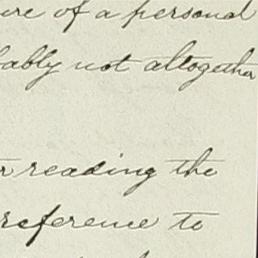 ure of a personal
bably not altogether
r reading the
reference to